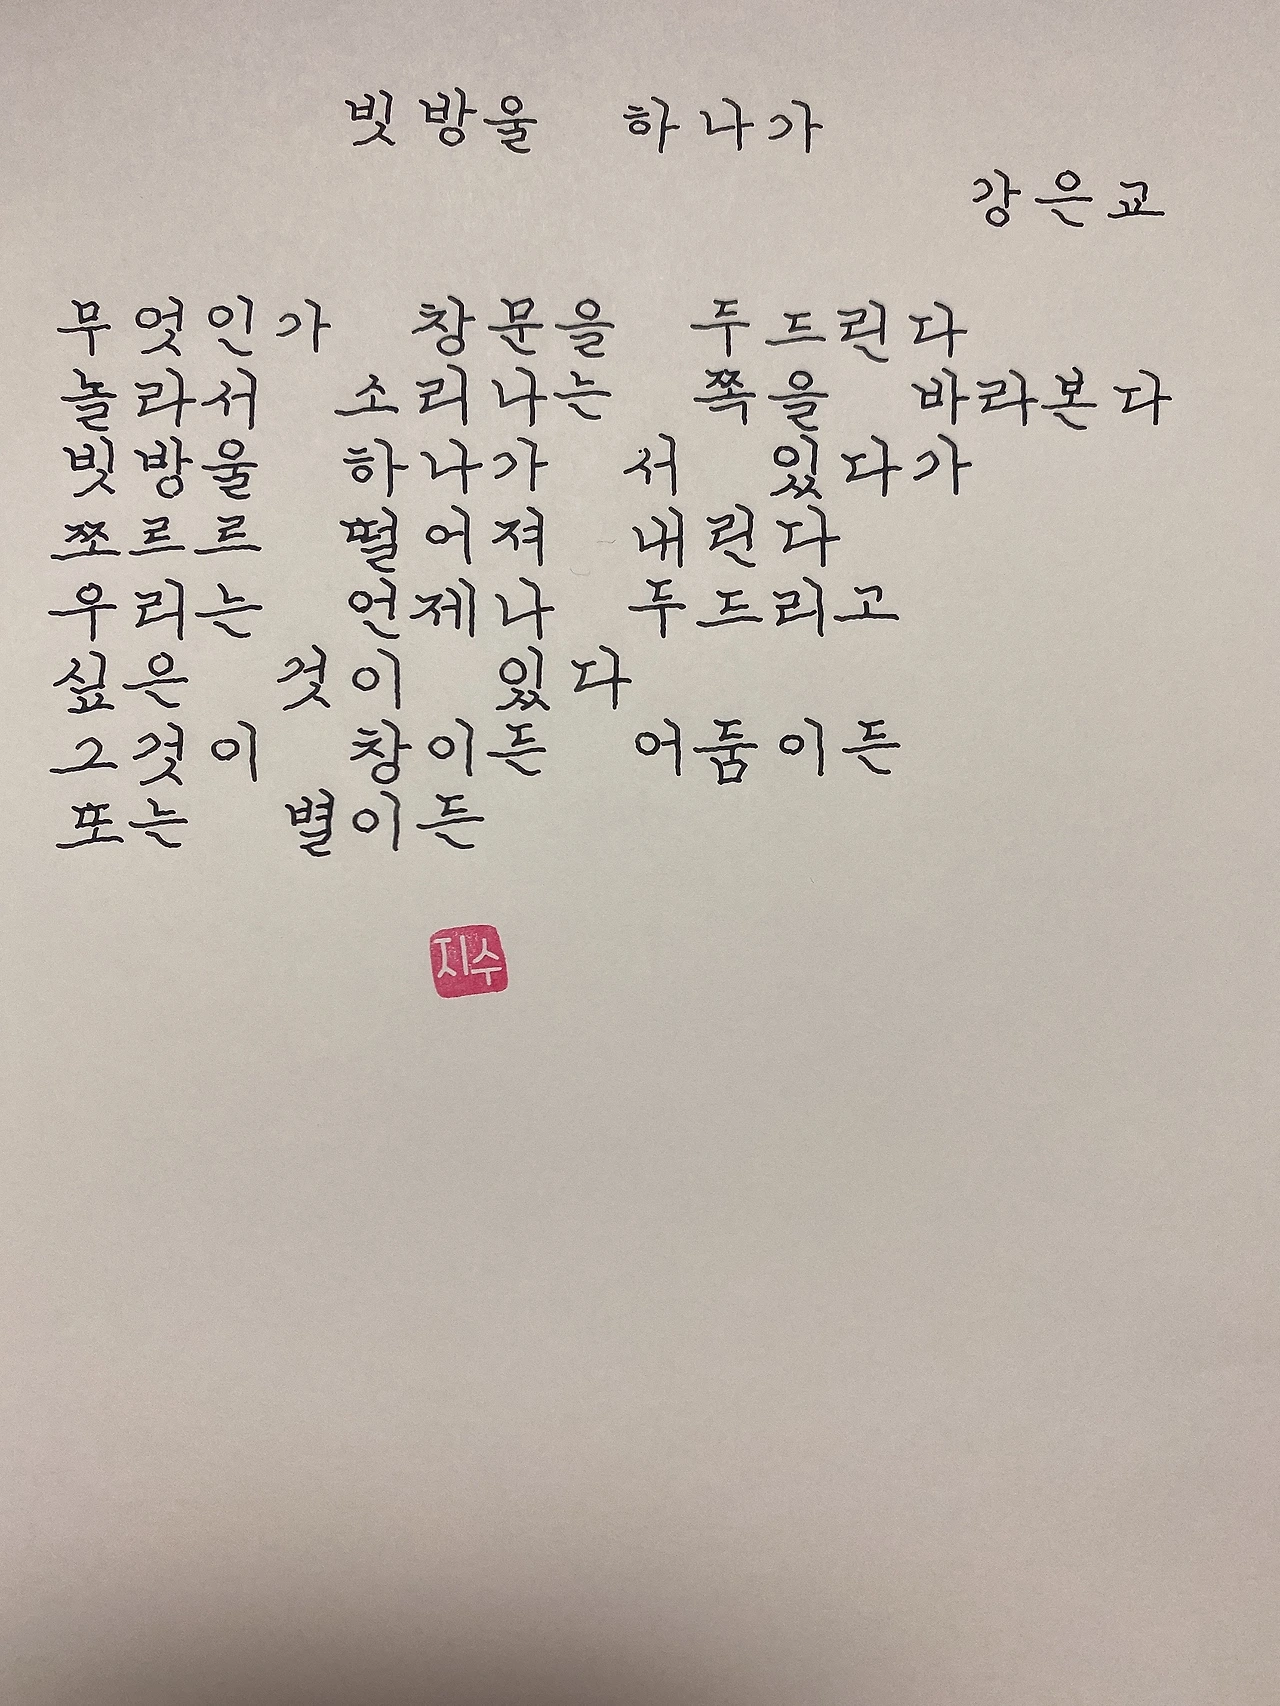 빗방울 하나가
강은교
무엇인가 창문을 두드린다
놀라서 소리나는 쪽을 바라본다
빗방울 하나가 서 있다가
쪼르르 떨어져 내린다
우리는 언제나 두드리고
싶은 것이 있다
그것이 창이든 어둠이든
또는 별이든
지수